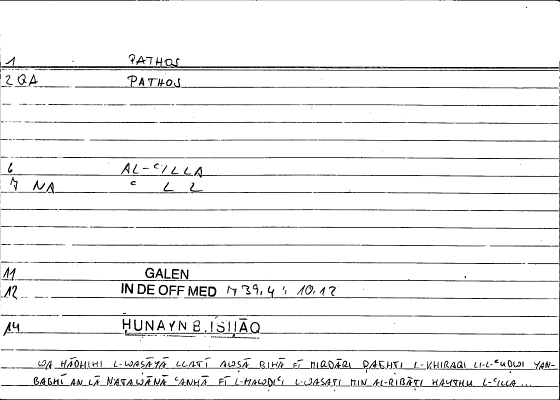 1 PATHOS
2 QA PATHOS
6 AL-ʿILLA
7 NA ʿ L L
11 GALEN
12 IN DE OFF MED 739.4 : 10.12
14 ḤUNAYN B. ISḤĀQ
WA HĀDHIHI L-WAṢĀYĀ LLATĪ AWṢĀ BIHĀ FĪ MIQDĀRI ḌAGHTI L-KHIRAQI LI-L-ʿUḌWI YAN-
BAGHĪ AN LĀ NATAWĀNĀ ʿANHĀ FĪ L-MAWḌIʿI L-WASAṬI MIN AL-RIBĀṬI ḤAYTHU L-ʿILLA ...